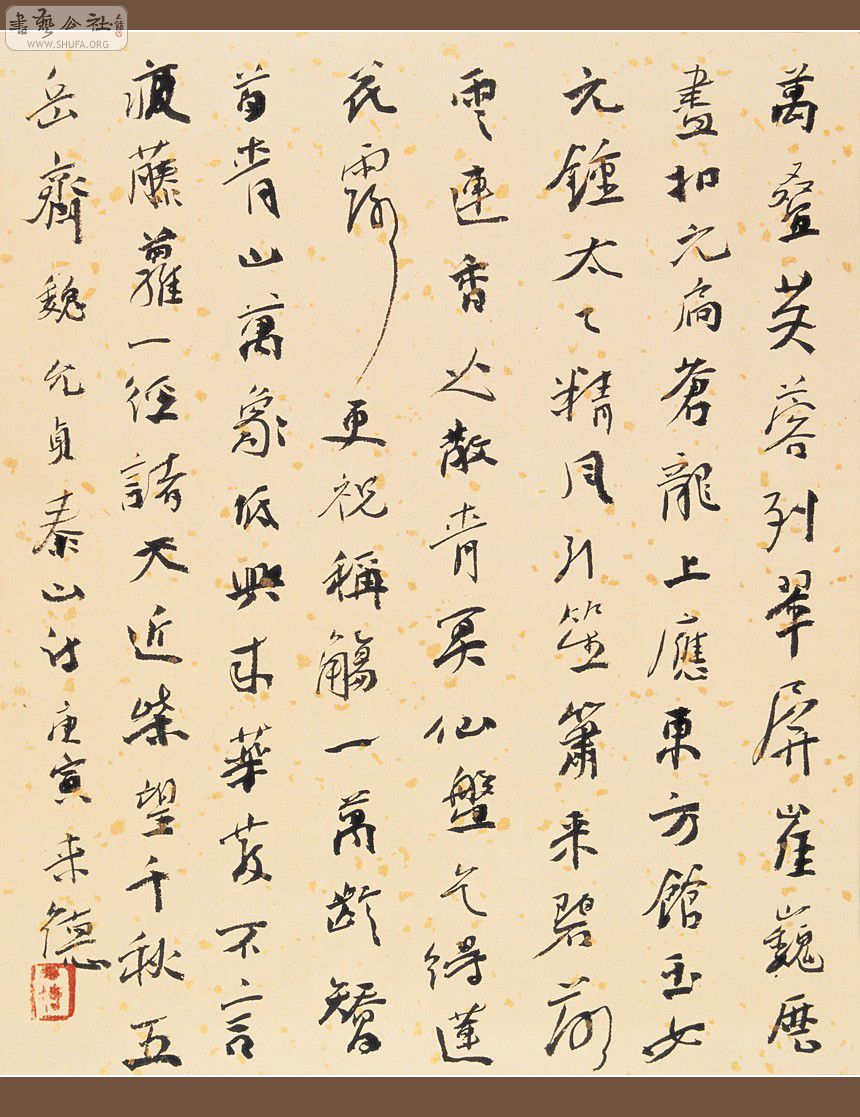 書藝公社
WWW.SHUFA.ORG
萬疊芙蓉列翠屏崔巍歷
盡扣元扃蒼龍上應東方館玉女
元鍾太乙精月引笙簫来碧落
雲連香火散青冥仙盤乞得蓮
花露更祝稱觴一萬齡矯
首青山萬象低興来華髮不言
疲藤蘿一徑諸天近柴望千秋五
岳齊魏允貞泰山詩庚寅来德